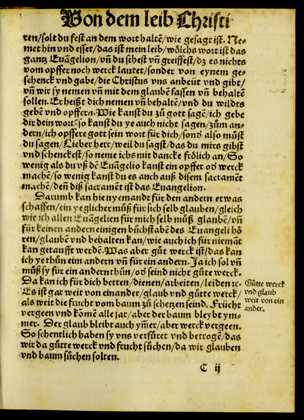 Von dem leib Christi
ren/ solt du fest an dem wort haltē/ wie gesagt ist. Ne-
met hin vnd esset/ das ist mein leib/ wölchs wort ist das
gantz Euāgelion/ vn̄ du sihest vn̄ greiffest/ dz es nichts
vom opffer noch werck lautet/ sonder von eynem ge-
schenck vnd gabe/ die Christus vns anbeüt vnd gibt/
vn̄ wir sy nemen vn̄ mit dem glaubē fassen vn̄ behaltē
sollen. Er heißt dich nemen vn̄ behaltē/ vnd du wildts
gebē vnd opffern. Wie kanst du zů gott sagē/ ich gebe
dir dein wort/ so kanst du ye auch nicht sagen/ zům an-
dern/ ich opffere gott sein wort für dich/ sond also můst
du sagen/ Lieber herr/ weil du sagst/ das du mirs gibst
vnd schenckest/ so neme ichs mit dancke frölich an/ So
wenig als du vß dē Euāgelio kanst ein opffer od werck
machē/ so wenig kanst du es auch auß disem sacramēt
machē/ deñ diß sacramēt ist das Euangelion.
Darumb kan hie nyemandt für den andern etwas
schaffen/ ein yeglicher můß für sich selb glauben/ gleich
wie ich allen Euāgelien für mich selb můß glaubē/ vn̄
für keinen andern einigen bůchstabē des Euangeli hö
ren/ glaubē vnd behalten kan/ wie auch ich für niemāt
kan getaufft werdē. Was aber gůt werck ist/ das kan
ich ye thůn eim andern vn̄ für ein andern. Ja ich sol vn̄
můß sy für ein andern thůn/ od seind nicht gůte werck.
Da kan ich für dich betten/ dienen/ arbeiten/ leiden ꝛc.
Es ist gar weit von einander/ glaub vnd gůtte werck/
als weit die frucht vom baum zů schetzen seind. Frücht
vergeen vnd kōmē alle jar/ aber der baum bleybt ym-
mer. Der glaub bleibt auch ym̄er/ aber werck vergeen.
So schentlich haben sy vns verfüret vnd betrogē/ das
wir da gůtte werck vnd frucht sůchen/ da wir glauben
vnd baum sůchen solten.
Gůtte werck
vnd glaub
weit von ein
ander.
C ij